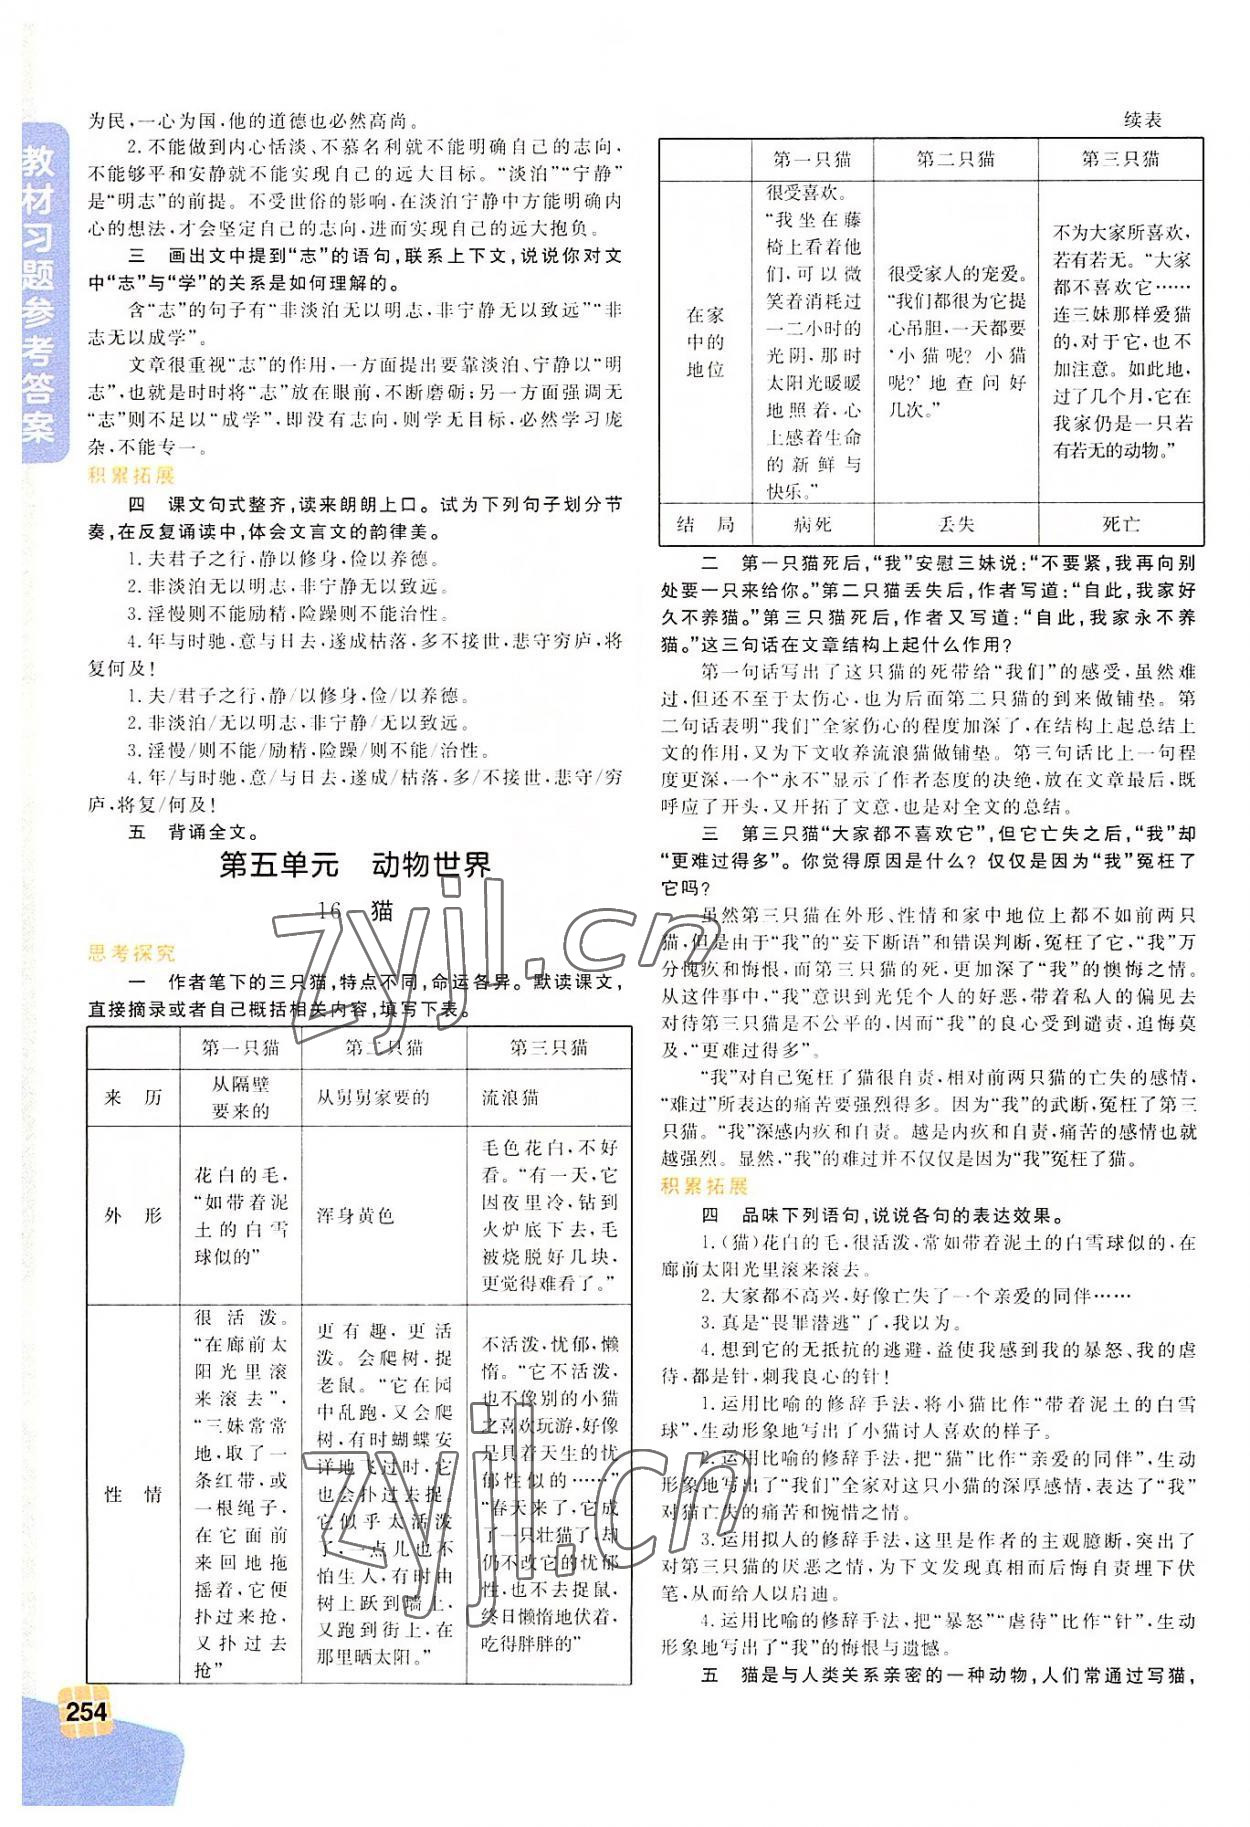 教材习题参考答案
为民，一心为国，他的道德也必然高尚。
2. 不能做到内心恬淡、不慕名利就不能明确自己的志向，
不能够平和安静就不能实现自己的远大目标。“淡泊”“宁静”
是“明志”的前提。不受世俗的影响，在淡泊宁静中方能明确内
心的想法，才会坚定自己的志向，进而实现自己的远大抱负。
三　画出文中提到“志”的语句，联系上下文，说说你对文
中“志”与“学”的关系是如何理解的。
含“志”的句子有“非淡泊无以明志，非宁静无以致远”“非
志无以成学”。
文章很重视“志”的作用，一方面提出要靠淡泊、宁静以“明
志”，也就是时时将“志”放在眼前，不断磨砺；另一方面强调无
“志”则不足以“成学”，即没有志向，则学无目标，必然学习庞
杂，不能专一。
积累拓展
四　课文句式整齐，读来朗朗上口。试为下列句子划分节
奏，在反复诵读中，体会文言文的韵律美。
1. 夫君子之行，静以修身，俭以养德。
2. 非淡泊无以明志，非宁静无以致远。
3. 淫慢则不能励精，险躁则不能治性。
4. 年与时驰，意与日去，遂成枯落，多不接世，悲守穷庐，将
复何及！
1. 夫/君子之行，静/以修身，俭/以养德。
2. 非淡泊/无以明志，非宁静/无以致远。
3. 淫慢/则不能/励精，险躁/则不能/治性。
4. 年/与时驰，意/与日去，遂成/枯落，多/不接世，悲守/穷
庐，将复/何及！
五　背诵全文。
第五单元　动物世界
16　猫
思考探究
一　作者笔下的三只猫，特点不同，命运各异。默读课文，
直接摘录或者自己概括相关内容，填写下表。
第一只猫　第二只猫　第三只猫
来　历
从隔壁
要来的
从舅舅家要的
流浪猫
外　形
花白的毛，
“如带着泥
土的白雪
球似的”
浑身黄色
毛色花白，不好
看。“有一天，它
因夜里冷，钻到
火炉底下去，毛
被烧脱好几块，
更觉得难看了。”
性　情
很活泼。
“在廊前太
阳光里滚
来滚去”
“三妹常常
地，取了一
条红带，或
一根绳子，
在它面前
来回地拖
摇着，它便
扑过来抢，
又扑过去
抢”
更有趣，更活
泼。会爬树，捉
老鼠。“它在园
中乱跑，又会爬
树，有时蝴蝶安
详地飞过时，它
也会扑过去捉。
它似乎太活泼
了，一点儿也不
怕生人，有时由
树上跃到墙上，
又跑到街上，在
那里晒太阳。”
不活泼，忧郁，懒
惰。“它不活泼，
也不像别的小猫
之喜欢玩游，好像
是具着天生的忧
郁性似的……”
“春天来了，它成
了一只壮猫了，却
仍不改它的忧郁
性，也不去捉鼠，
终日懒惰地伏着，
吃得胖胖的”
254
续表
第一只猫　第二只猫　第三只猫
在家
中的
地位
很受喜欢。
“我坐在藤
椅上看着他
们，可以微
笑着消耗过
一二小时的
光阴，那时
太阳光暖暖
地照着，心
上感着生命
的新鲜与
快乐。”
很受家人的宠爱。
“我们都很为它提
心吊胆，一天都要
‘小猫呢？小猫
呢？’地查问好
几次。”
不为大家所喜欢，
若有若无。“大家
都不喜欢它……
连三妹那样爱猫
的，对于它，也不
加注意。如此地，
过了几个月，它在
我家仍是一只若
有若无的动物。”
结　局　病死　丢失　死亡
二　第一只猫死后，“我”安慰三妹说：“不要紧，我再向别
处要一只来给你。”第二只猫丢失后，作者写道：“自此，我家好
久不养猫。”第三只猫死后，作者又写道：“自此，我家永不养
猫。”这三句话在文章结构上起什么作用？
第一句话写出了这只猫的死带给“我们”的感受，虽然难
过，但还不至于太伤心，也为后面第二只猫的到来做铺垫。第
二句话表明“我们”全家伤心的程度加深了，在结构上起总结上
文的作用，又为下文收养流浪猫做铺垫。第三句话比上一句程
度更深，一个“永不”显示了作者态度的决绝，放在文章最后，既
呼应了开头，又开拓了文意，也是对全文的总结。
三　第三只猫“大家都不喜欢它”，但它亡失之后，“我”却
“更难过得多”。你觉得原因是什么？仅仅是因为“我”冤枉了
它吗？
虽然第三只猫在外形、性情和家中地位上都不如前两只
猫，但是由于“我”的“妄下断语”和错误判断，冤枉了它，“我”万
分愧疚和悔恨，而第三只猫的死，更加深了“我”的懊悔之情。
从这件事中，“我”意识到光凭个人的好恶，带着私人的偏见去
对待第三只猫是不公平的，因而“我”的良心受到谴责，追悔莫
及，“更难过得多”。
“我”对自己冤枉了猫很自责，相对前两只猫的亡失的感情，
“难过”所表达的痛苦要强烈得多。因为“我”的武断，冤枉了第三
只猫。“我”深感内疚和自责。越是内疚和自责，痛苦的感情也就
越强烈。显然，“我”的难过并不仅仅是因为“我”冤枉了猫。
积累拓展
四　品味下列语句，说说各句的表达效果。
1.（猫）花白的毛，很活泼，常如带着泥土的白雪球似的，在
廊前太阳光里滚来滚去。
2. 大家都不高兴，好像亡失了一个亲爱的同伴……
3. 真是“畏罪潜逃”了，我以为。
4. 想到它的无抵抗的逃避，益使我感到我的暴怒、我的虐
待，都是针，刺我良心的针！
1. 运用比喻的修辞手法，将小猫比作“带着泥土的白雪
球”，生动形象地写出了小猫讨人喜欢的样子。
2. 运用比喻的修辞手法，把“猫”比作“亲爱的同伴”，生动
形象地写出了“我们”全家对这只小猫的深厚感情，表达了“我”
对猫亡失的痛苦和惋惜之情。
3. 运用拟人的修辞手法，这里是作者的主观臆断，突出了
对第三只猫的厌恶之情，为下文发现真相而后悔自责埋下伏
笔，从而给人以启迪。
4. 运用比喻的修辞手法，把“暴怒”“虐待”比作“针”，生动
形象地写出了“我”的悔恨与遗憾。
五　猫是与人类关系亲密的一种动物，人们常通过写猫，
zyjl.cn
zyjl.cn